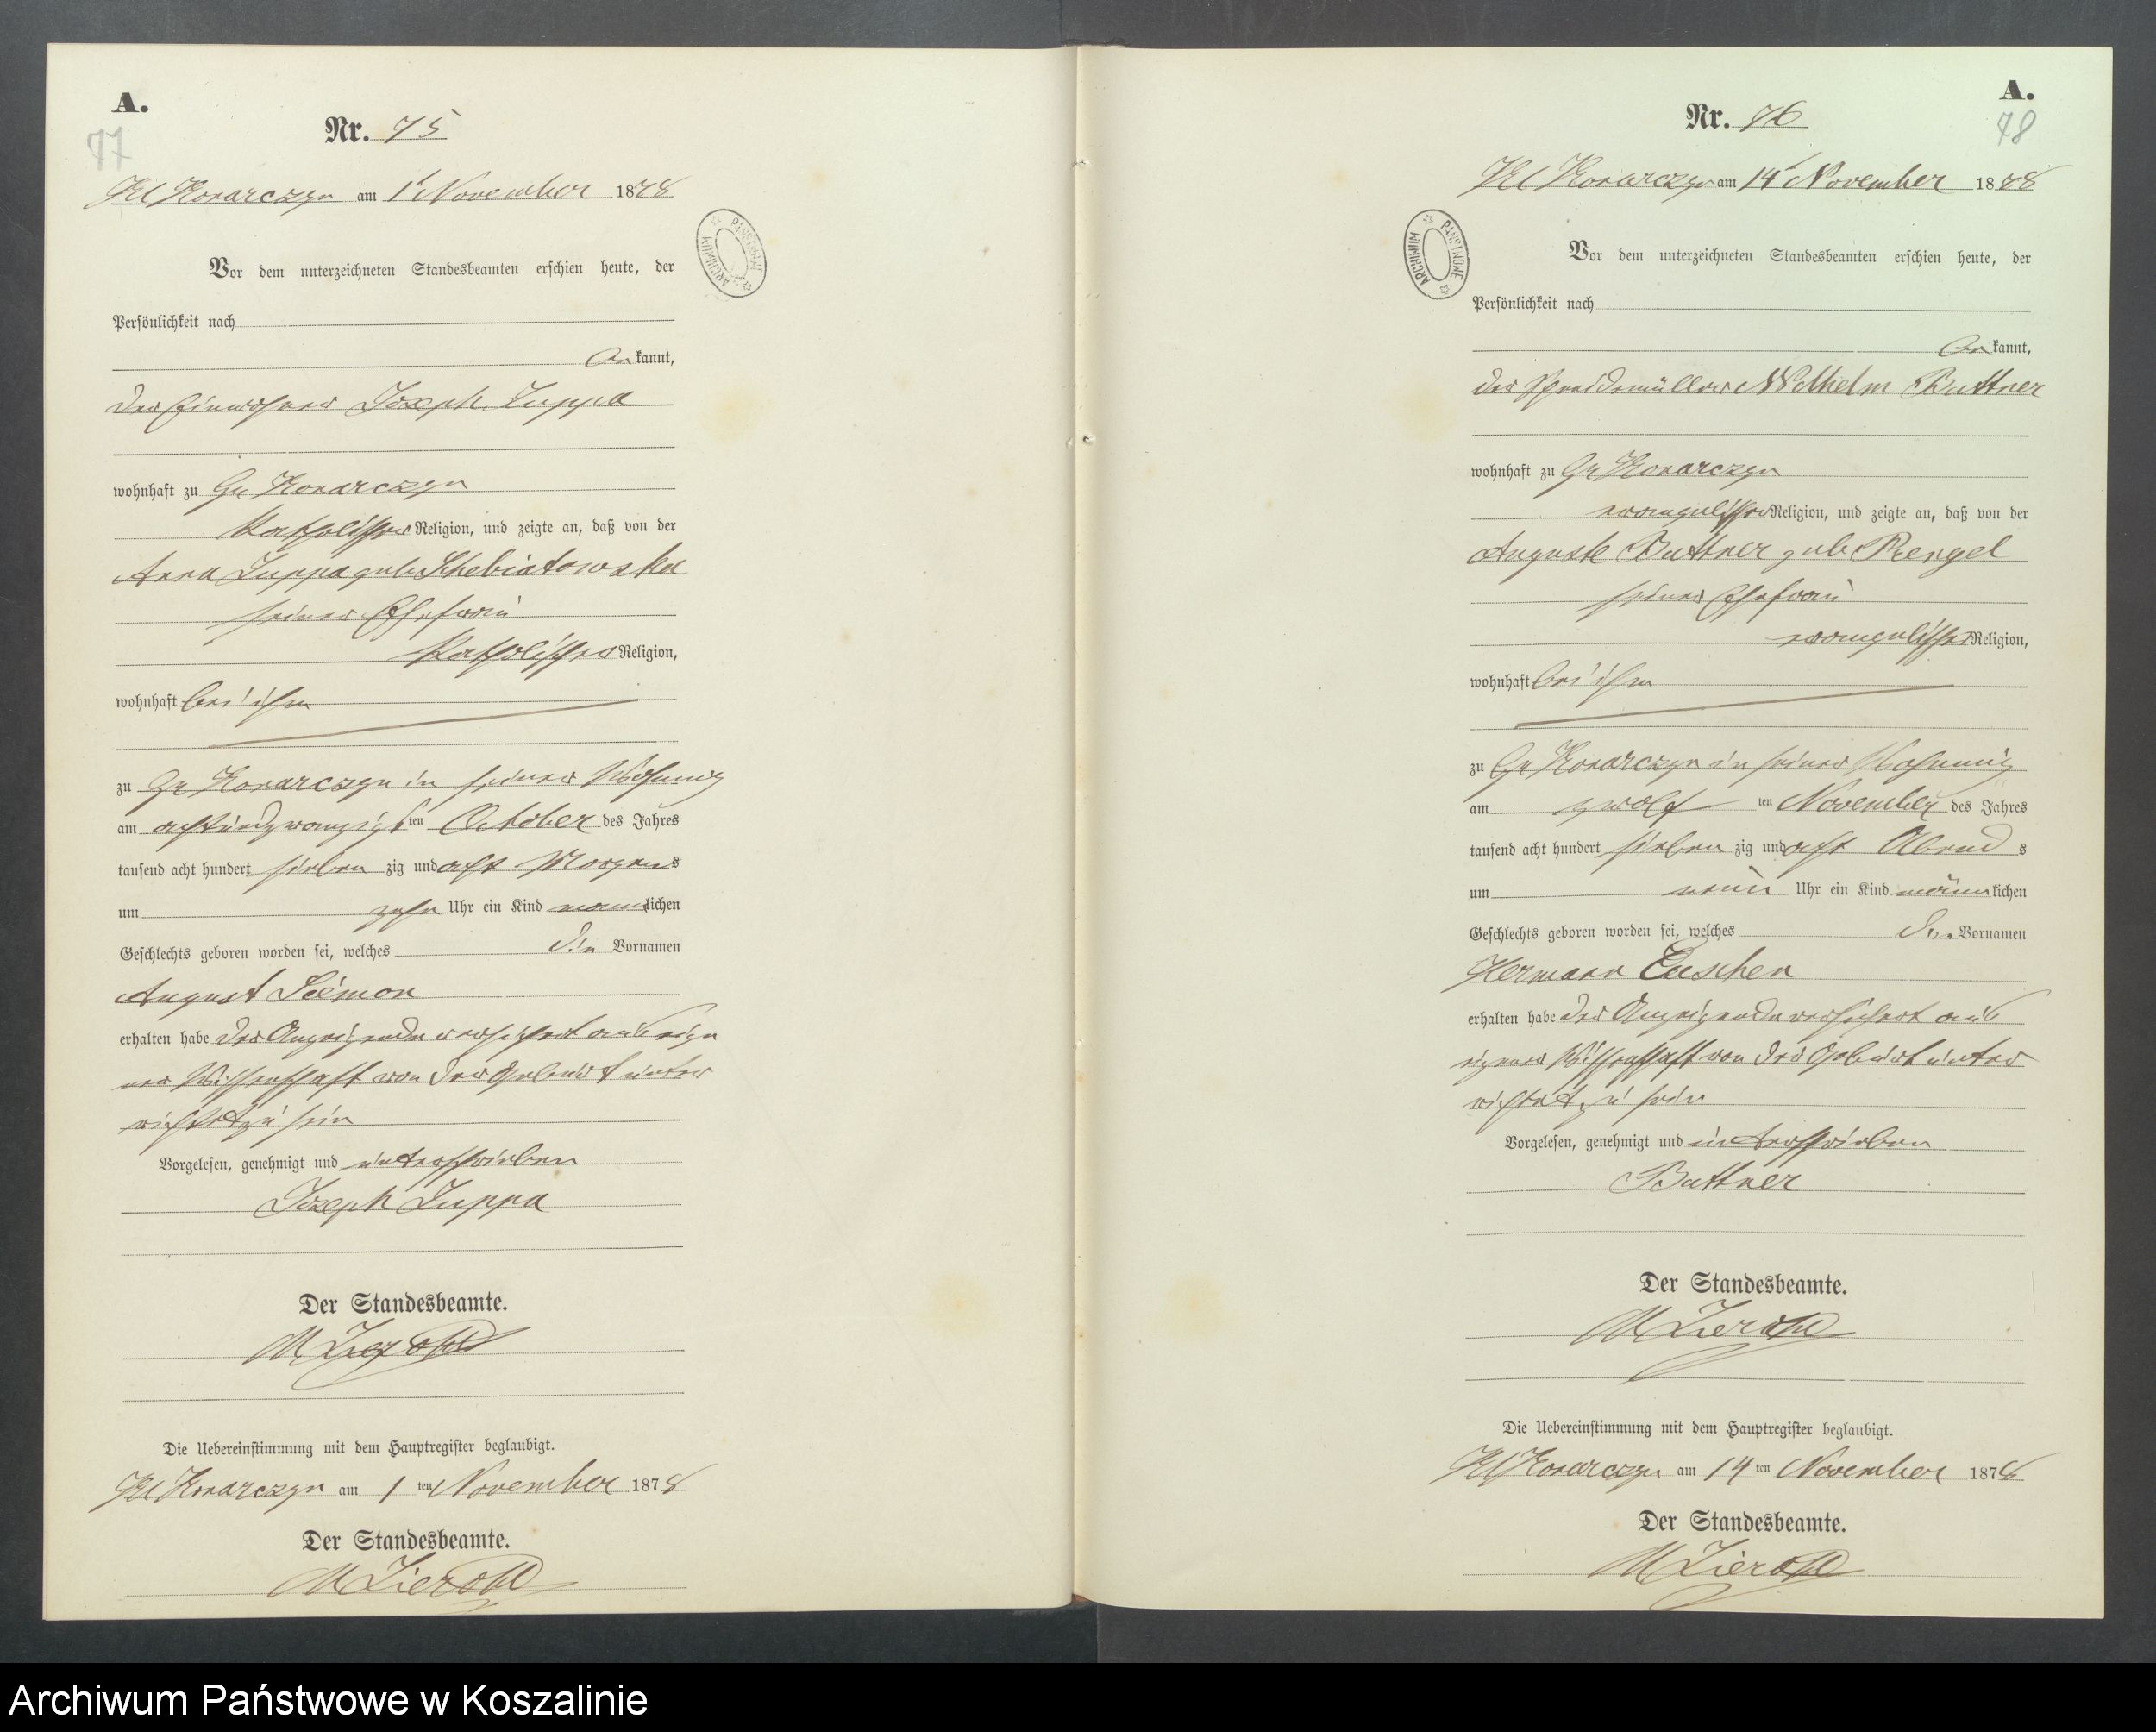 A.
77
Nr. 75
Kl Konarczyn am 1t November 1878
ARCHIWUM PAŃSTWOWE
Vor dem unterzeichneten Standesbeamten erschien heute, der
Persönlichkeit nach
be kannt,
der Einwohner Joseph Luppa
wohnhaft zu Gr Konarczyn
katholischer Religion, und zeigte an, daß von der
Anna Luppa geb Schebiatowska
seiner Ehefrau
katholischer Religion,
wohnhaft bei ihm
zu Gr Konarczyn in seiner Wohnung
am achtundzwanzigsten October des Jahres
tausend acht hundert sieben zig und acht Morgens
um zehn Uhr ein Kind männlichen
Geschlechts geboren worden sei, welches die Vornamen
August Siemon
erhalten habe der Anzeigende versichert aus eige
ner Wissenschaft von der Geburt unter
richtet zu sein
Vorgelesen, genehmigt und unterschrieben
Joseph Luppa
Der Standesbeamte.
Die Uebereinstimmung mit dem Hauptregister beglaubigt.
Kl Konarczyn am 1 ten November 1878
Der Standesbeamte.
A.
78
Nr. 76
Kl Konarczyn am 14t November 1878
ARCHIWUM PAŃSTWOWE
Vor dem unterzeichneten Standesbeamten erschien heute, der
Persönlichkeit nach
be kannt,
der Schneidemüller Wilhelm Buttner
wohnhaft zu Gr Konarczyn
evangelischer Religion, und zeigte an, daß von der
Auguste Buttner geb Rengel
seiner Ehefrau
evangelischer Religion,
wohnhaft bei ihm
zu Gr Konarczyn in seiner Wohnung
am zwölf ten November des Jahres
tausend acht hundert sieben zig und acht Abend s
um neun Uhr ein Kind männlichen
Geschlechts geboren worden sei, welches den Vornamen
Hermann
erhalten habe der Anzeigende versichert aus
eigner Wissenschaft von der Geburt unter
richtet zu sein
Vorgelesen, genehmigt und unterschrieben
Buttner
Der Standesbeamte.
Die Uebereinstimmung mit dem Hauptregister beglaubigt.
Kl Konarczyn am 14 ten November 1878
Der Standesbeamte.
Archiwum Państwowe w Koszalinie